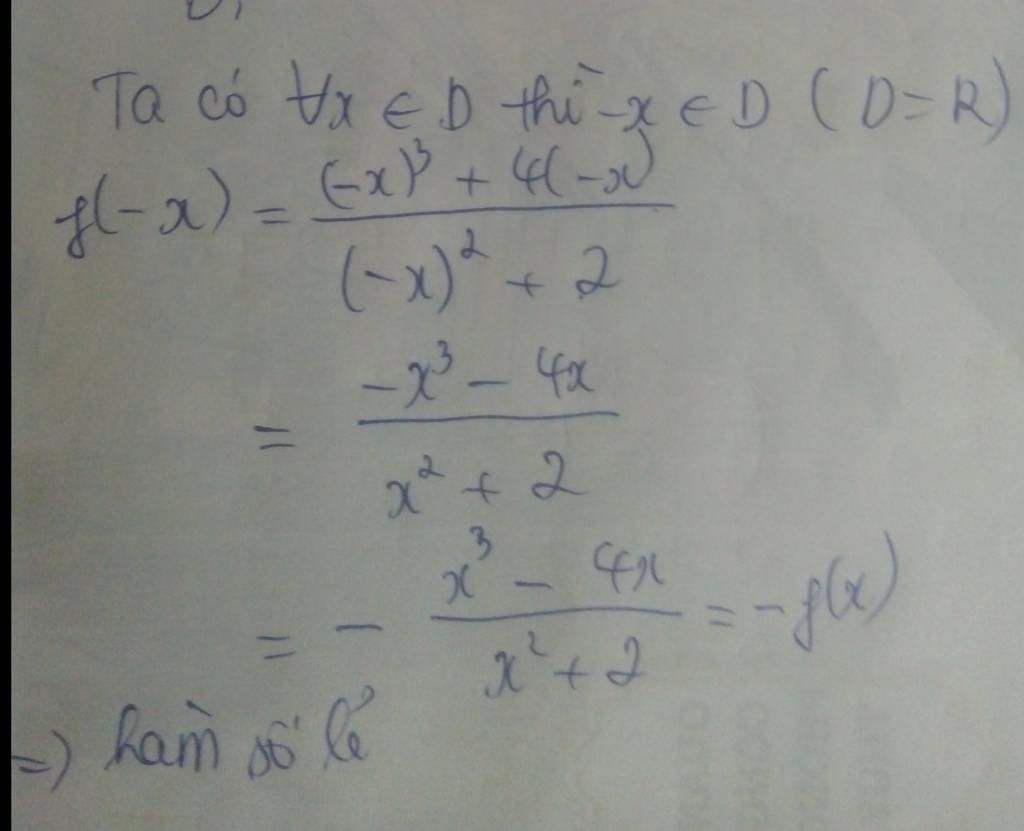 Ta có ∀x ∈ D thì -x ∈ D ( D = R )
f(-x) = \frac{(-x)^3 + 4(-x)}{(-x)^2 + 2}
= \frac{-x^3 - 4x}{x^2 + 2}
= - \frac{x^3 - 4x}{x^2 + 2} = -f(x)
=) hàm số lẻ